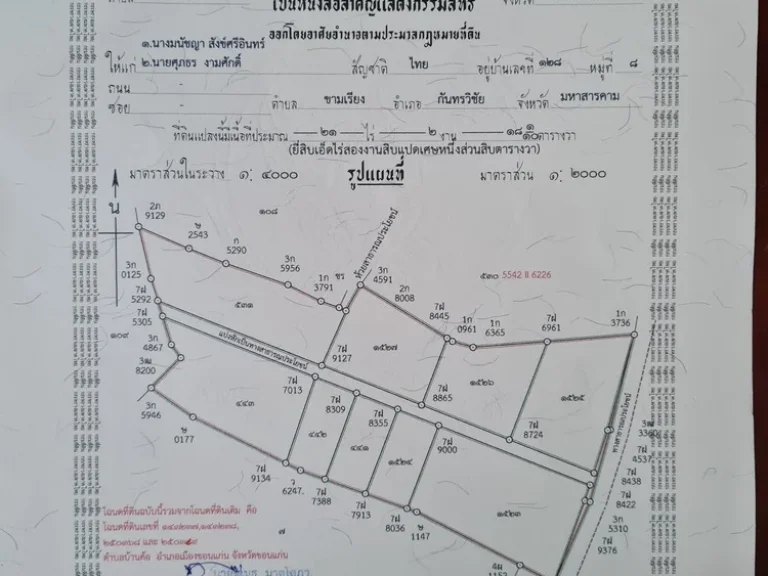 เป็นหนังสือสำคัญแสดงกรรมสิทธิ์
ออกโดยอาศัยอำนาจตามประมวลกฎหมายที่ดิน
๑.นางมนัชญา สังข์ศรีอินทร์
ให้แก่ ๒.นายศุภธร งามศักดิ์ สัญชาติ ไทย อยู่บ้านเลขที่ ๑๒๘ หมู่ที่ ๘
ถนน -
ซอย - ตำบล ขามเรียง อำเภอ กันทรวิชัย จังหวัด มหาสารคาม
ที่ดินแปลงนี้มีเนื้อที่ประมาณ ๒๑ ไร่ ๒ งาน ๑๘ ๑/๑๐ ตารางวา
(ยี่สิบเอ็ดไร่สองงานสิบแปดเศษหนึ่งส่วนสิบตารางวา)
มาตราส่วนในระวาง ๑: ๔๐๐๐ รูปแผนที่ มาตราส่วน ๑: ๒๐๐๐
น
๑๐๘
2ภ
9129
ษ
2543
ก
5290
3ก
5956
1ก
3791
ชร
ห้วยสาธารณประโยชน์
3ก
4591
2ก
8008
๕๓๐ 5542 II 6226
3ก
0125
7ฝ
5292
7ฝ
5305
๕๓๑
7ฝ
8445
1ก
0961
1ก
6365
7ฝ
6961
1ก
3736
๑๐๙
3ก
4867
3ฒ
8200
3ก
5946
แบ่งหักเป็นทางสาธารณประโยชน์
7ฝ
9127
๑๕๒๗
๑๕๒๖
๑๕๒๕
7ฝ
7013
7ฝ
8309
7ฝ
8355
7ฝ
8865
7ฝ
9000
7ฝ
8724
ทางสาธารณประโยชน์
๔๔๓
๔๔๒
๔๔๑
๑๕๒๔
๑๕๒๓
ษ
0177
7ฝ
9134
ว
6247
7ฝ
7388
7ฝ
7913
7ฝ
8036
ษ
1147
3ฒ
7ฝ
4537
7ฝ
8438
7ฝ
8422
3ก
5310
7ฝ
9376
4ม
๗
โฉนดที่ดินฉบับนี้รวมจากโฉนดที่ดินเดิม คือ
โฉนดที่ดินเลขที่
ตำบลบ้านค้อ อำเภอเมืองขอนแก่น จังหวัดขอนแก่น